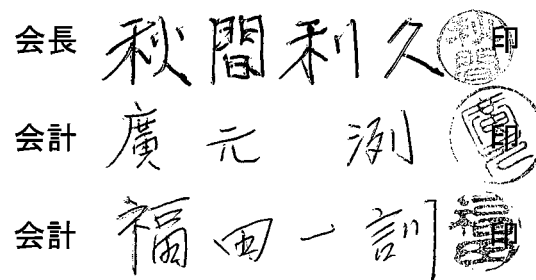 会長 秋間利久 印
会計 廣元 洌 印
会計 福田一訓 印